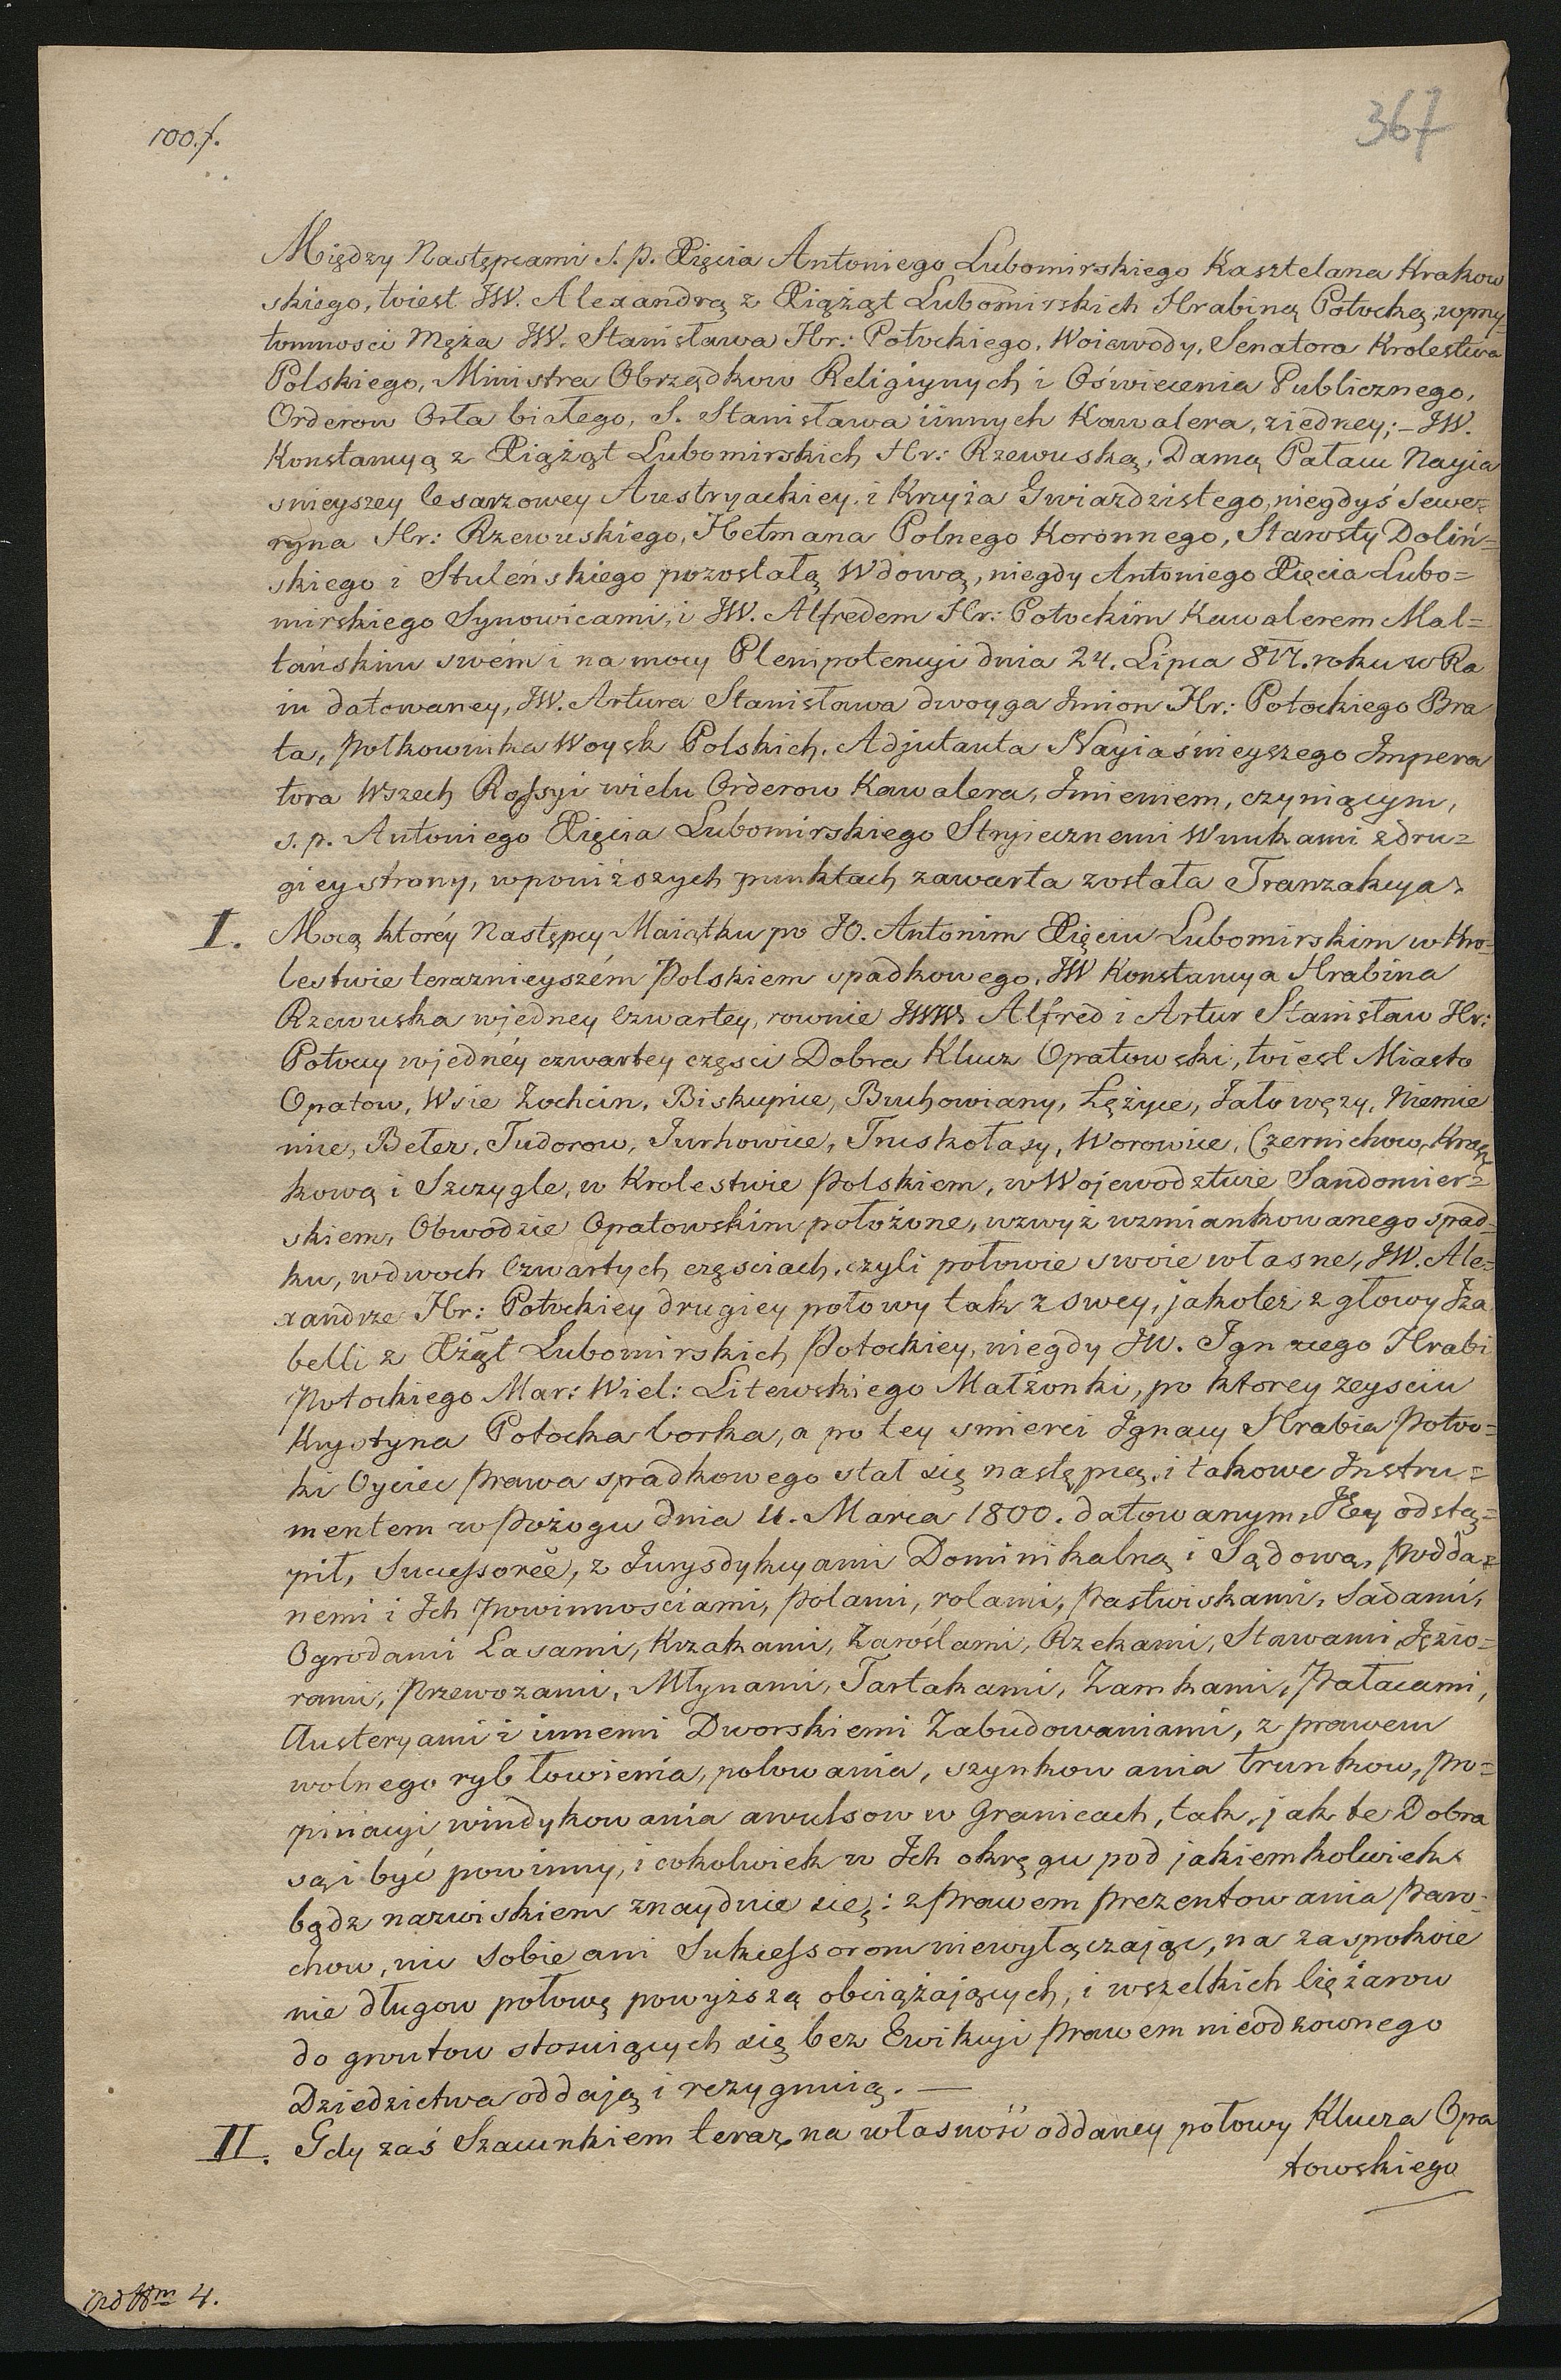 100.f.
367
Między Następcami s. p. Xięcia Antoniego Lubomirskiego Kasztelana Krakow
skiego, toiest JW. Alexandrą z Xiążąt Lubomirskich Hrabiną Potocką, wprzy-
tomnosci Męża JW. Stanisława Hr: Potockiego, Woiewody, Senatora Krolestwa
Polskiego, Ministra Obrządkow Religiynych i Oświecenia Publicznego,
Orderow Orła białego, S. Stanisława iinnych Kawalera, ziedney; – JW.
Konstancyą z Xiążąt Lubomirskich Hr: Rzewuską, Damą Pałacu Nayia
snieyszey Cesarzowey Austryackiey i Krzyża Gwiazdzistego, niegdyś Sewe=
ryna Hr: Rzewuskiego, Hetmana Polnego Koronnego, Starosty Doliń=
skiego i Stuleńskiego pozostałą Wdową, niegdy Antoniego Xięcia Lubo=
mirskiego Synowicami, i JW. Alfredem Hr: Potockim Kawalerem Mal=
tańskim swém i na mocy Plenipotencyi dnia 24. Lipca 817. roku w Ra
iu datowaney, JW. Artura Stanisława dwoyga Imion Hr: Potockiego Bra
ta, Połkownika Woysk Polskich, Adjutanta Nayiaśnieyszego Impera
tora Wszech Rossyi wielu Orderow Kawalera, Imieniem, czyniącym,
s. p. Antoniego Xięcia Lubomirskiego Stryiecznemi Wnukami zdru=
giey strony, wponiższych punktach zawarta została Tranzakcya.
I. Mocą któréy Następcy Maiątku po JO. Antonim Xięciu Lubomirskim w Kro-
lestwie teraznieyszém Polskiem spadkowego, JW Konstancya Hrabina
Rzewuska wjedney Czwartey, rownie JWW. Alfred i Artur Stanisław Hr:
Potoccy wjednéy czwartey części Dobra Klucz Opatowski, toiest Miasto
Opatow, Wsie Zochcin, Biskupice, Bruhowiany, Łężyce, Jałowęzy, Niemie
nice, Beter, Tudorow, Jurhowice, Truskołasy, Worowice, Czernichow, Krasz
kową i Szczygle, w Krolestwie Polskiem, w Wojewodztwie Sandomier=
skiem, Obwodzie Opatowskim położone, wzwyż wzmiankowanego spad-
ku, wdwoch Czwartych częściach, czyli połowie swoie własne, JW. Ale=
xandrze Hr: Potockiey drugiey połowy tak z swey, jakoteż z głowy Iza
belli z Xżąt Lubomirskich Potockiey, niegdy JW. Ignacego Hrabi
Potockiego Mar: Wiel: Litewskiego Małżonki, po ktorey zeysciu
Krystyna Potocka Corka, a po tey smierci Ignacy Hrabia Poto=
ki Oyciec Prawa spadkowego stał się następcą, i takowe Instru=
mentem w Pożogu dnia 11. Marca 1800. datowanym, Jey odstą=
pił, Sucessorce, z Jurysdykcyami Dominikalną i Sądową, Podda=
nemi i Ich Powinnościami, Polami, rolami, Pastwiskami, Sadami,
Ogrodami Lasami, Krzakami, Zaroślami, Rzekami, Stawami Jezio=
rami, Przewozami, Młynami, Tartakami, Zamkami, Pałacami,
Austeryami i innemi Dworskiemi Zabudowaniami, z prawem
wolnego ryb łowienia, polowania, szynkowania trunkow, Pro=
pinacyi windykowania awulsow w Granicach, tak, jak te Dobra
są i być powinny, i cokolwiek w Ich okręgu pod jakiemkolwiek
bądz nazwiskiem znayduie się: z Prawem Prezentowania Paro-
chow, nic Sobie ani Sukcessorom niewyłączając, na zaspokoie
nie długow połowę powyższą obciążających, i wszelkich Ciężarow
do gruntow stosuiących się bez Ewikcyi Prawem nieodzownego
Dziedzictwa oddają i rezygnuią. —
II. Gdy zaś Szacunkiem teraz na własność oddaney połowy Klucza Opa
towskiego
4.